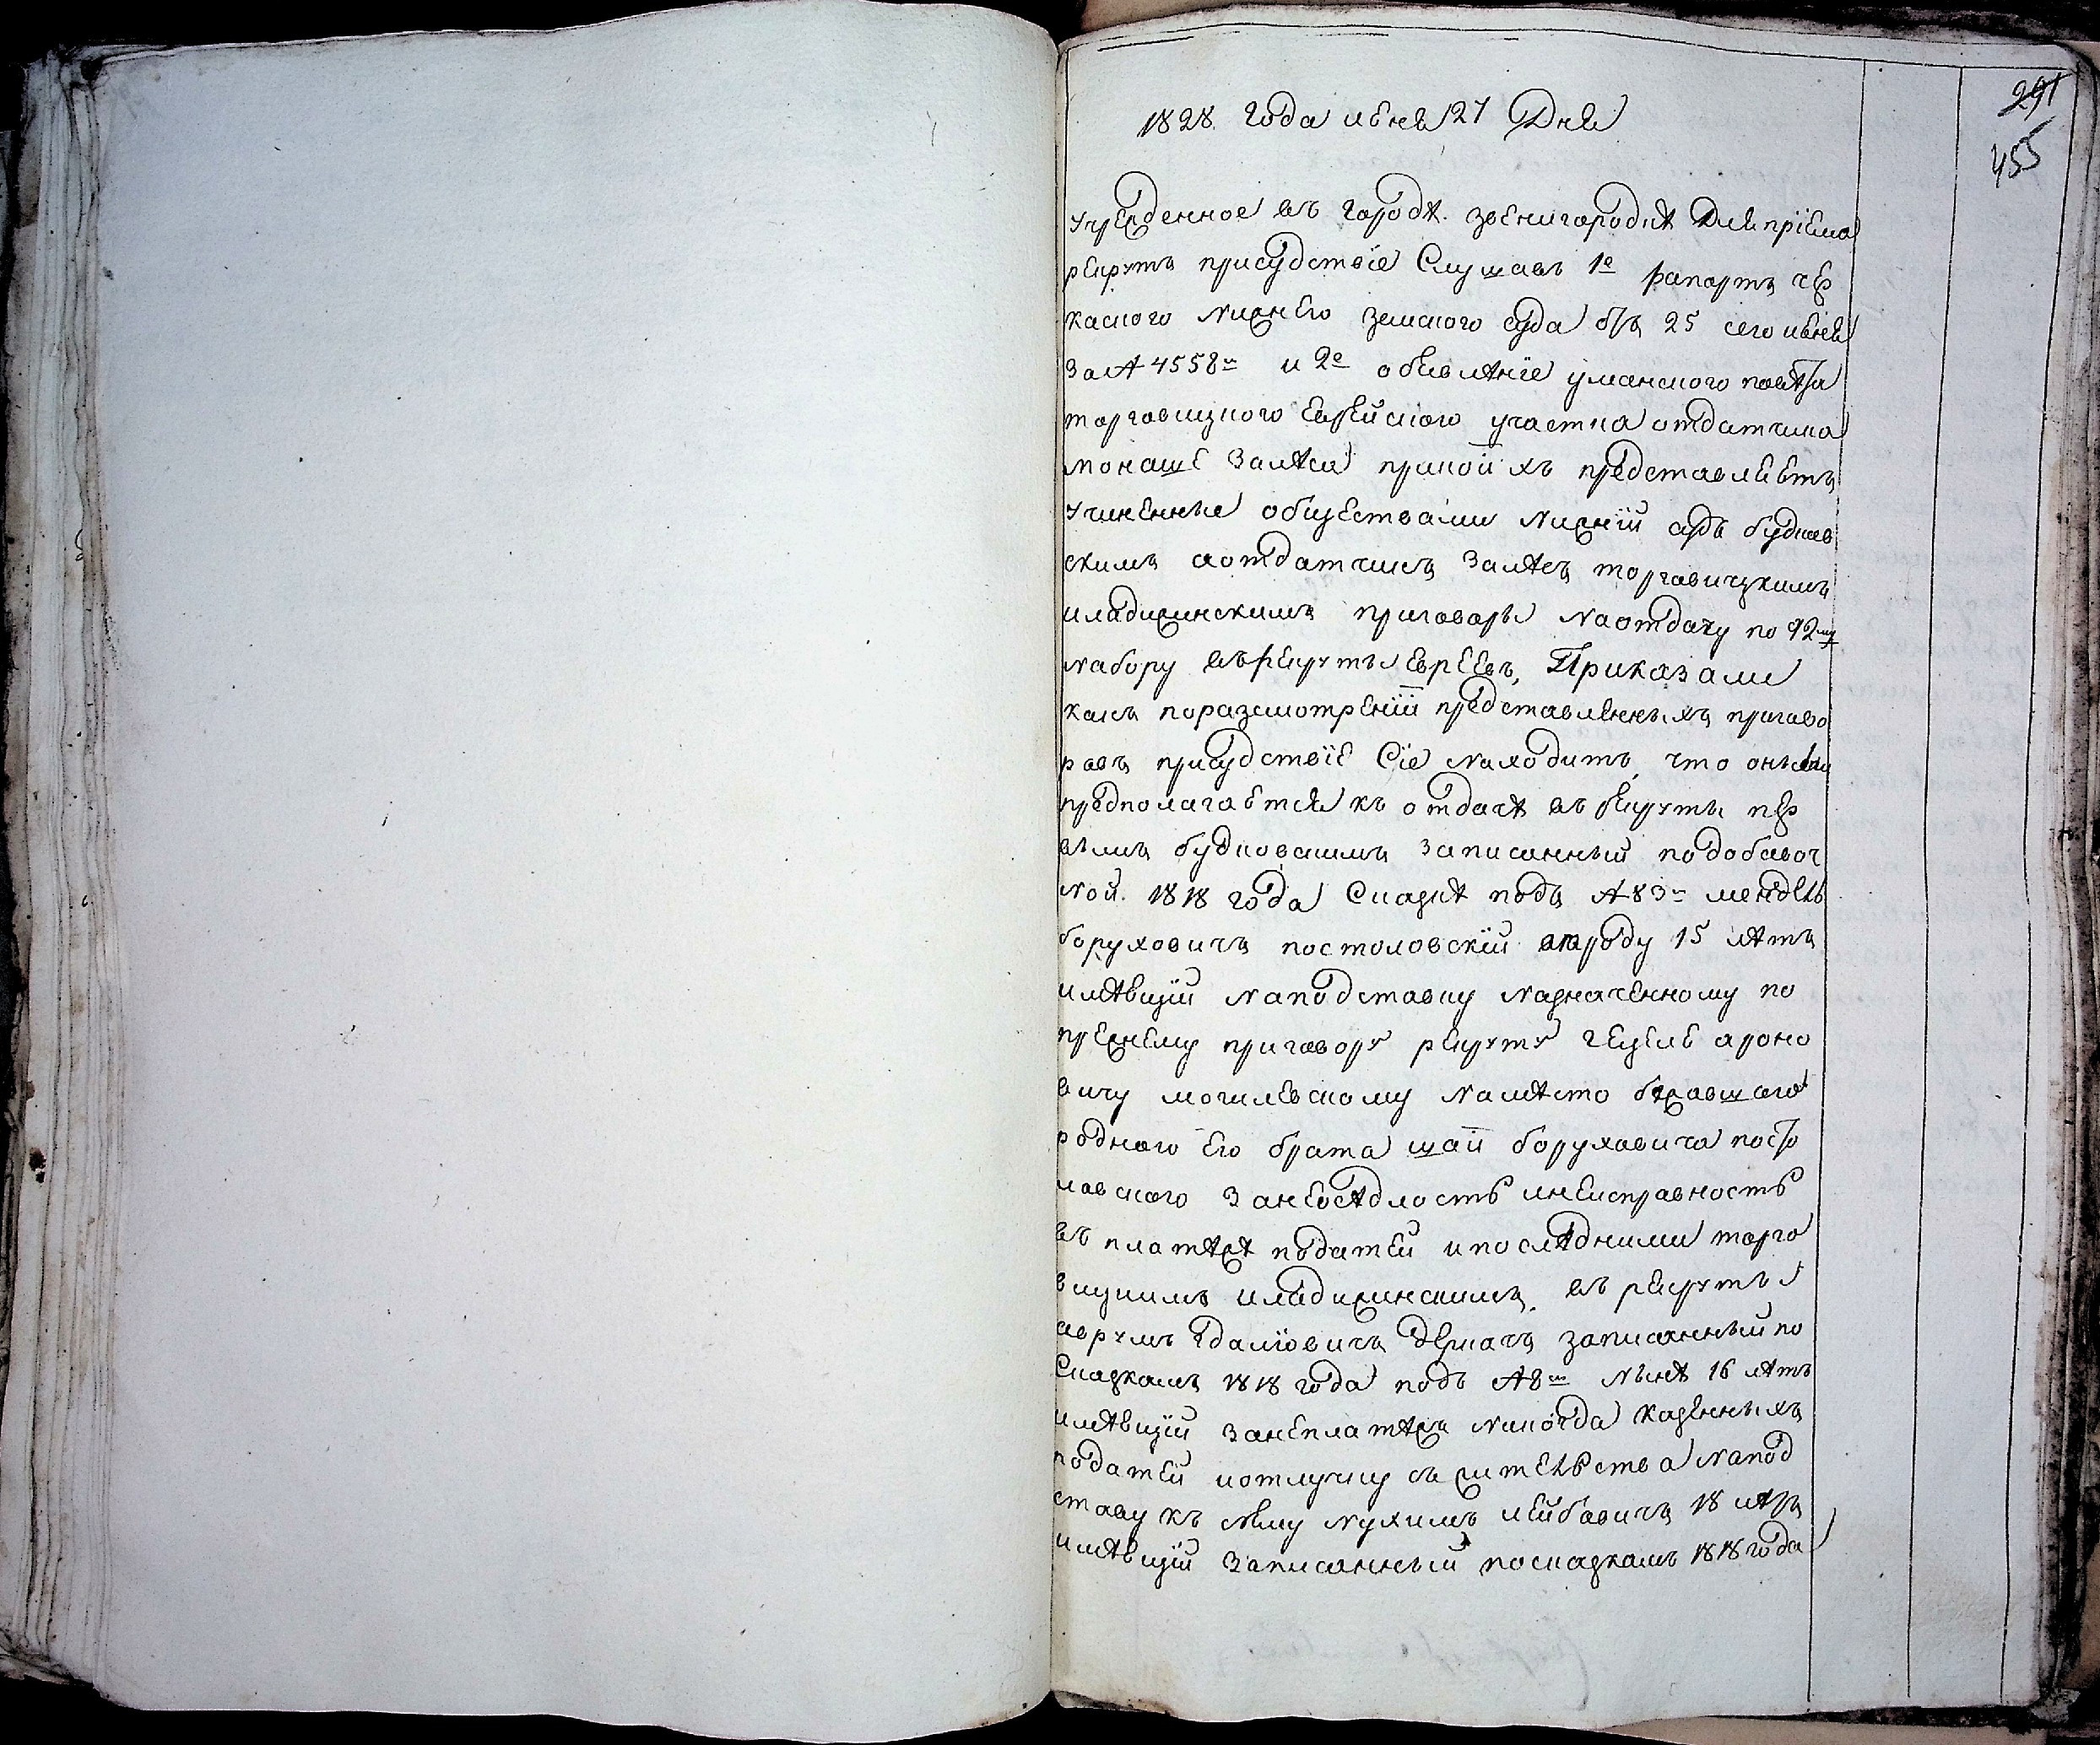 291
455
1828. года июня 27 Дня
учрежденное въ городѣ. звенигородкѣ Для пріема
рекрутъ присудствіе Слушавъ 1е рапортъ чер
каского нижнего земского суда отъ 25 сего июня
за № 4558м и 2е объявленіе уманского повѣта
торговицкого Еврейского участка отдатчика
при коихъ представляетъ
учиненные обществами нижній судъ будков
скимъ а отдатчикъ торговицкимъ
приговоры на отдачу по 92му
набору въ рекруты евреевъ, Приказали
какъ по разсмотреніи представленныхъ пригово
ровъ присудствіе Сіе находитъ, что оными
предполагается къ отдаче въ рекруты пер
вымъ будковскимъ записанный по добавоч
ной. 1818 года Сказке подъ № 83м мендель
борухович постоловскій отроду 15 лѣтъ
имѣющій на подставку назначенному по
прежнему приговору рекруту гецеле ароно
вичу могилевскому на мѣсто бежавшаго
родного его брата шаи боруховича посто
ловского за неосѣдлость и неисправность
въ платежѣ податей и последними торго
вицкимъ въ рекруты
аврумъ записанный по
Сказкамъ 1818 года подъ № 8м нынѣ 16 лѣтъ
имѣющій за неплатежъ никогда казенныхъ
податей и отлучку съ жительства на под
ставу къ нему нухимъ лейбовичъ 18 лѣтъ
имѣющій записанный по сказкамъ 1818 года